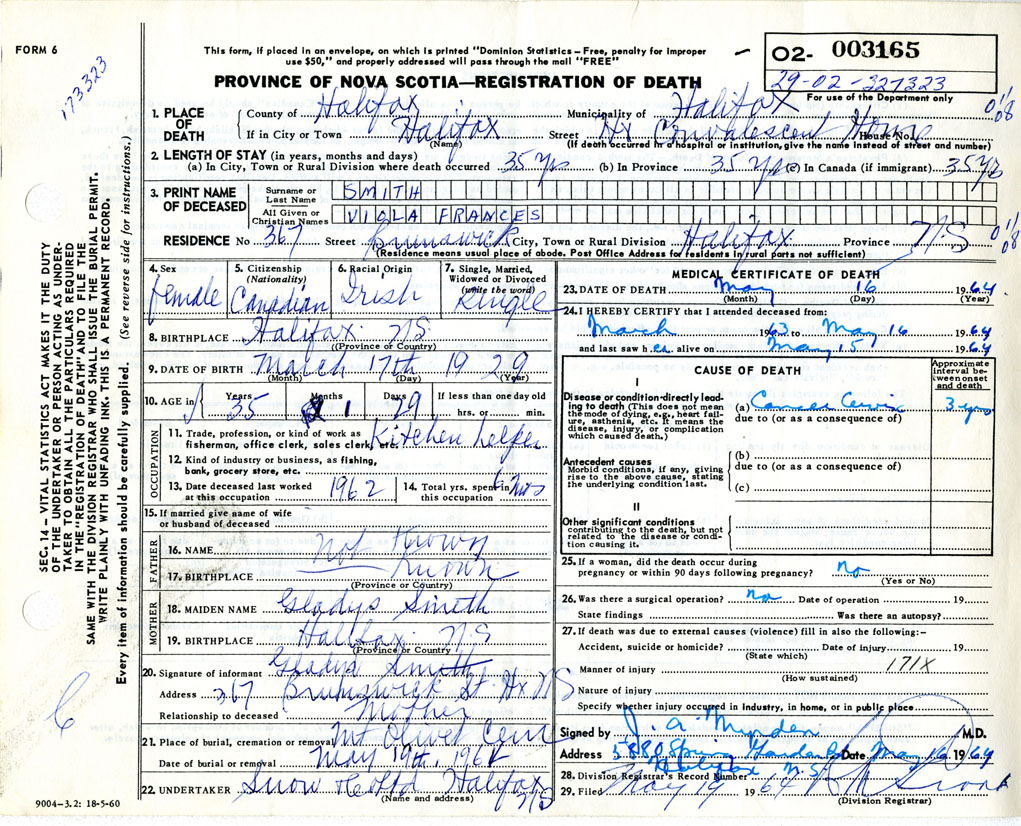 FORM 6
173323
This form, if placed in an envelope, on which is printed "Dominion Statistics—Free, penalty for improper
use $50," and properly addressed will pass through the mail "FREE"
PROVINCE OF NOVA SCOTIA—REGISTRATION OF DEATH
O2- 003165
29-02-327323
For use of the Department only
1. PLACE OF DEATH
County of Halifax Municipality of Halifax
If in City or Town Halifax Street Hx Convalescent Home House No.
(Name) (If death occurred in a hospital or institution, give the name instead of street and number)
01/08
2. LENGTH OF STAY (in years, months and days)
(a) In City, Town or Rural Division where death occurred 35 Yrs (b) In Province 35 Yrs (c) In Canada (if immigrant) 35 Yrs
3. PRINT NAME OF DECEASED
Surname or Last Name SMITH
All Given or Christian Names VIOLA FRANCES
RESIDENCE No 367 Street Brunswick City, Town or Rural Division Halifax Province NS
(Residence means usual place of abode. Post Office Address for residents in rural parts not sufficient)
01/08
SEC. 14 — VITAL STATISTICS ACT MAKES IT THE DUTY
OF THE UNDERTAKER OR PERSON ACTING AS UNDER-
TAKER TO OBTAIN ALL THE PARTICULARS REQUIRED
IN THE "REGISTRATION OF DEATH" AND TO FILE THE
SAME WITH THE DIVISION REGISTRAR WHO SHALL ISSUE THE BURIAL PERMIT.
WRITE PLAINLY WITH UNFADING INK. THIS IS A PERMANENT RECORD.
Every item of information should be carefully supplied. (See reverse side for instructions.)
4. Sex female
5. Citizenship (Nationality) Canadian
6. Racial Origin Irish
7. Single, Married, Widowed or Divorced (write the word) Single
8. BIRTHPLACE Halifax NS
(Province or Country)
9. DATE OF BIRTH March 17th 1929
(Month) (Day) (Year)
10. AGE in Years 35 Months 1 Days 29 If less than one day old hrs. or min.
OCCUPATION
11. Trade, profession, or kind of work as fisherman, office clerk, sales clerk, etc. Kitchen helper
12. Kind of industry or business, as fishing, bank, grocery store, etc.
13. Date deceased last worked at this occupation 1962
14. Total yrs. spent in this occupation 6
15. If married give name of wife or husband of deceased
FATHER
16. NAME Not Known
17. BIRTHPLACE Known
(Province or Country)
MOTHER
18. MAIDEN NAME Gladys Smith
19. BIRTHPLACE Halifax NS
(Province or Country)
20. Signature of informant Gladys Smith
Address 367 Brunswick St Hx NS
Relationship to deceased Mother
21. Place of burial, cremation or removal Mt Olivet Cem
Date of burial or removal May 19th 1964
22. UNDERTAKER Snow & Co Ltd Halifax NS
(Name and address)
9004-3.2: 18-5-60
MEDICAL CERTIFICATE OF DEATH
23. DATE OF DEATH May 16 1964
(Month) (Day) (Year)
24. I HEREBY CERTIFY that I attended deceased from:
March 1963 to May 16 1964
and last saw her alive on May 15 1964
CAUSE OF DEATH
Approximate interval between onset and death
I
Disease or condition directly leading to death (This does not mean the mode of dying, e.g., heart failure, asthenia, etc. It means the disease, injury, or complication which caused death.)
(a) Cancer Cervix 3 yrs
due to (or as a consequence of)
Antecedent causes
Morbid conditions, if any, giving rise to the above cause, stating the underlying condition last.
(b)
due to (or as a consequence of)
(c)
II
Other significant conditions
contributing to the death, but not related to the disease or condition causing it.
25. If a woman, did the death occur during pregnancy or within 90 days following pregnancy? no
(Yes or No)
26. Was there a surgical operation? no Date of operation 19
State findings Was there an autopsy?
27. If death was due to external causes (violence) fill in also the following:—
Accident, suicide or homicide? Date of injury 19
(State which)
Manner of injury 171X
(How sustained)
Nature of injury
Specify whether injury occurred in industry, in home, or in public place
Signed by J. A. Mynden M.D.
Address 5880 Spring Garden Rd Date May 16 1964
Halifax N.S.
28. Division Registrar's Record Number
29. Filed May 19 1964
(Division Registrar)